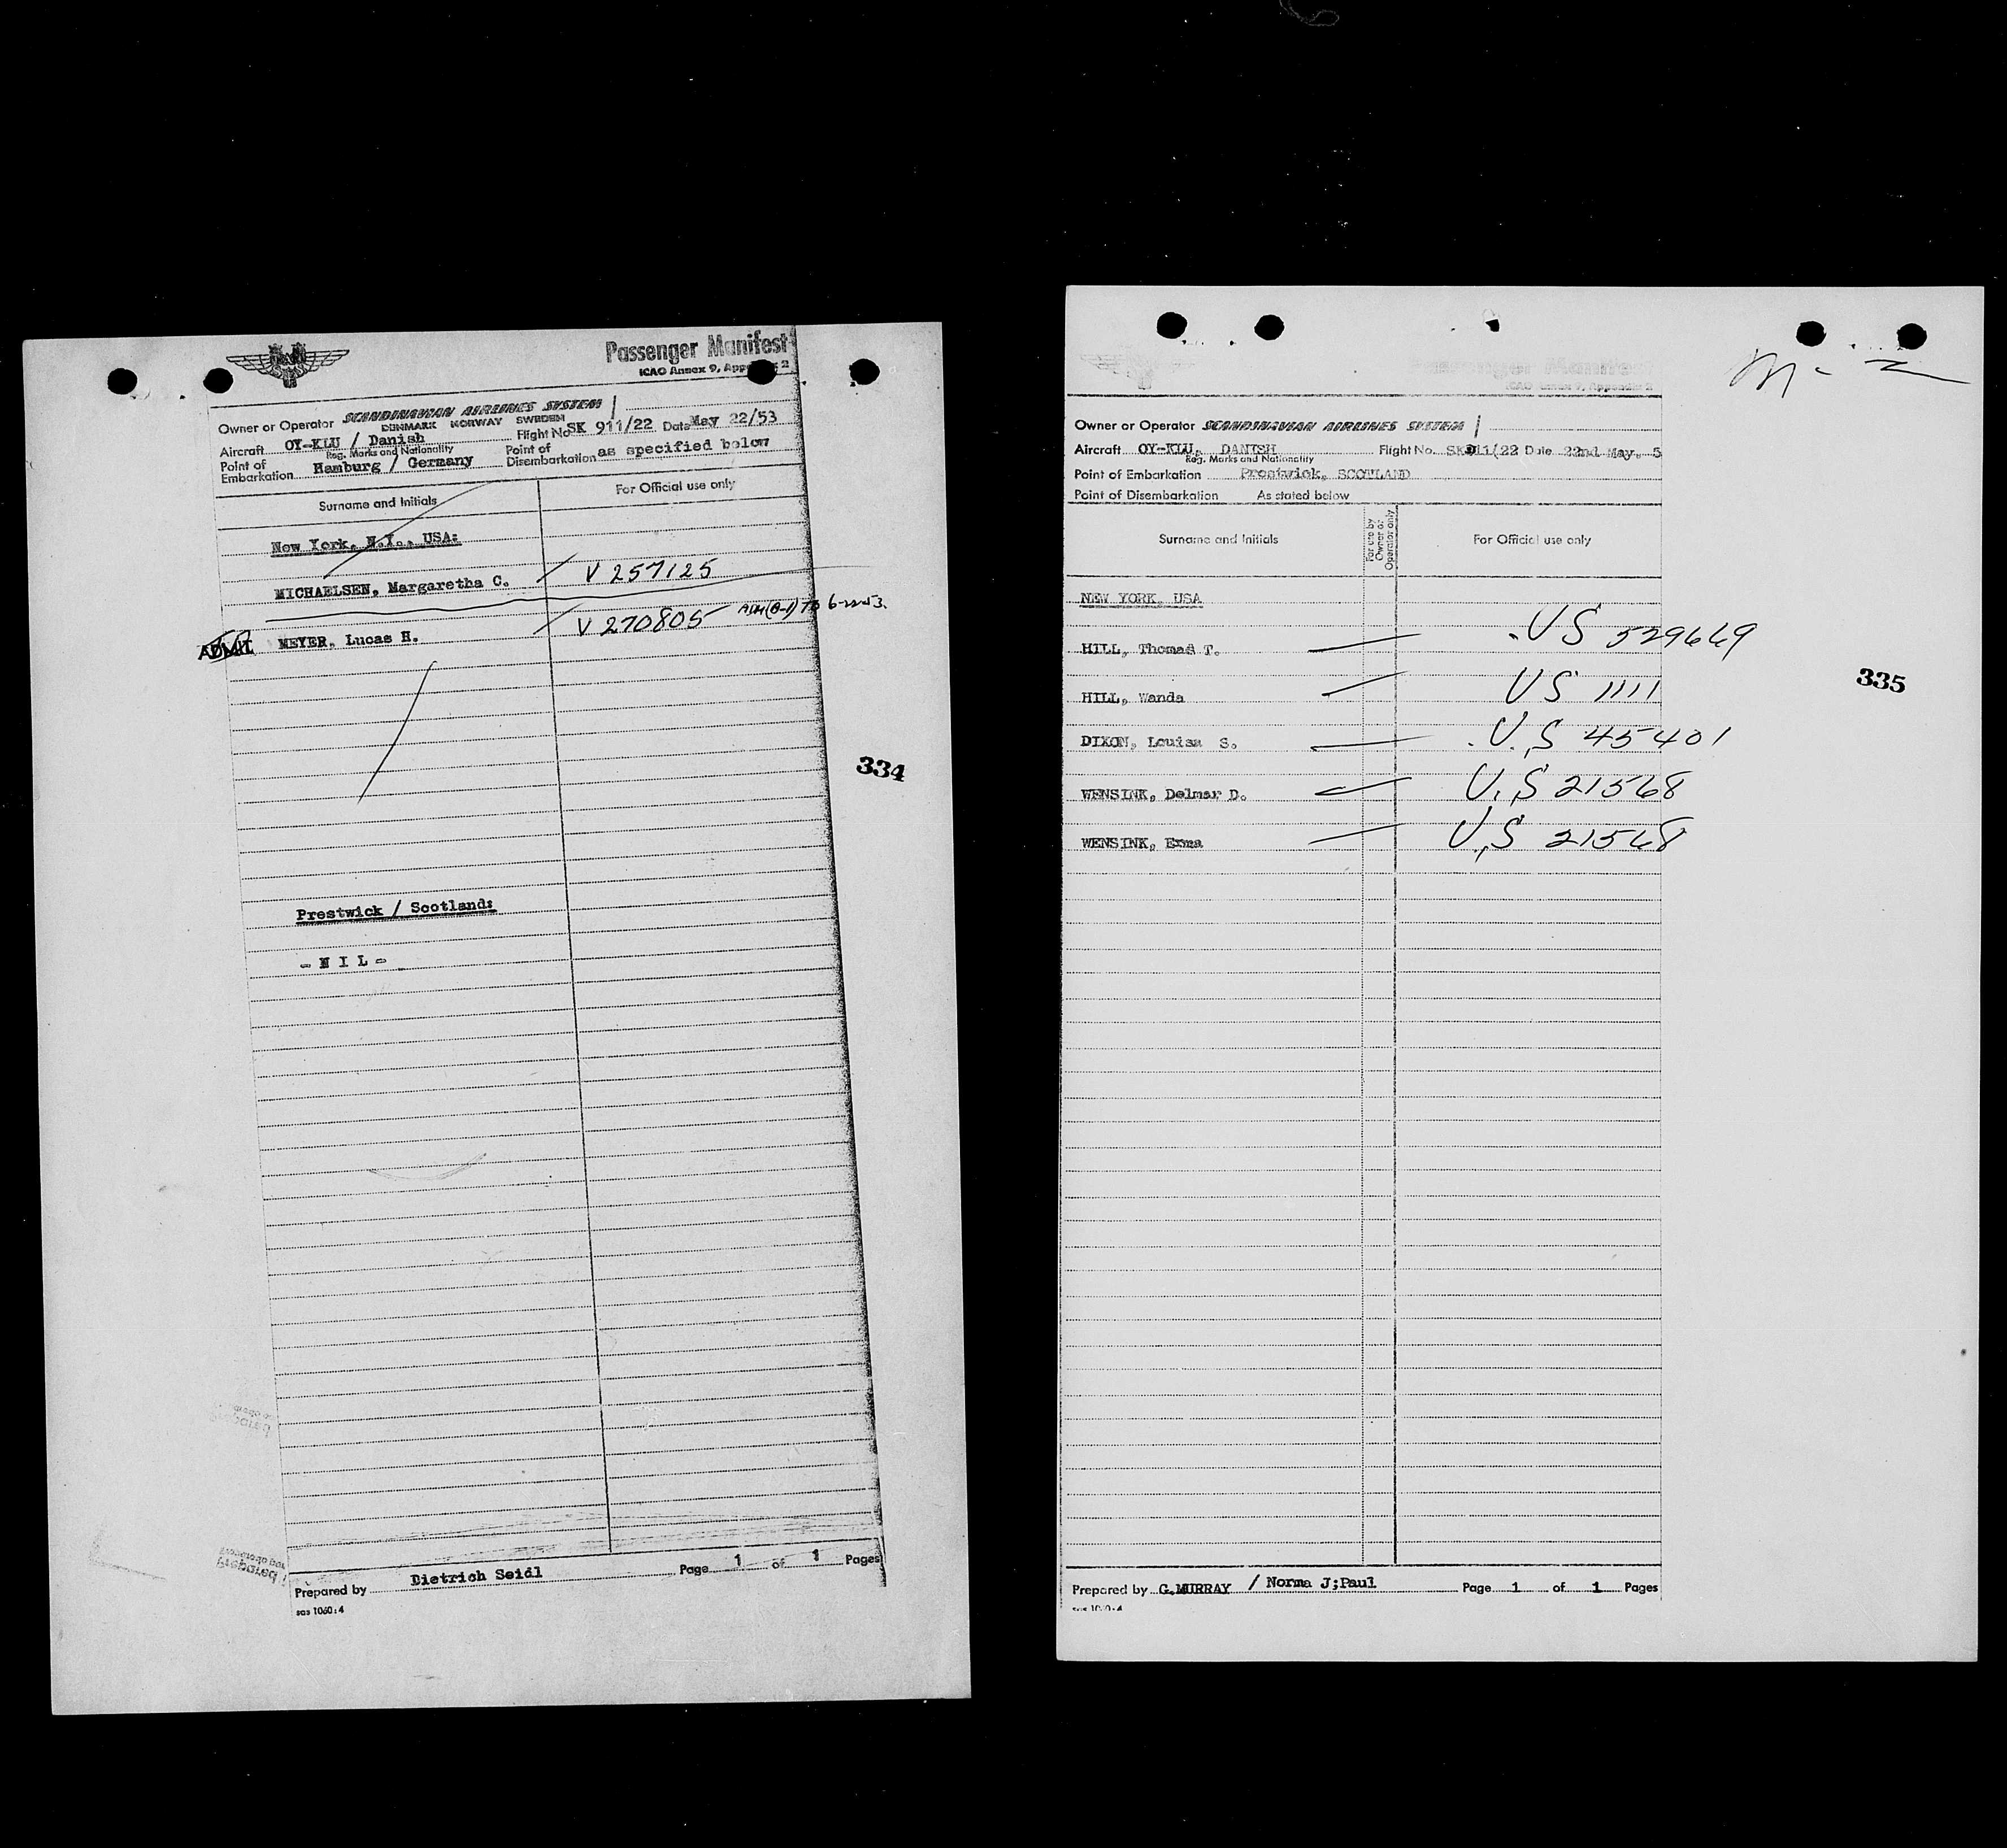 Passenger Manifest
ICAO Annex 9, Appendix 2
Owner or Operator SCANDINAVIAN AIRLINES SYSTEM
DENMARK NORWAY SWEDEN
Aircraft OY-KLU / Danish Flight No. SK 911/22 Date May 22/53
Reg. Marks and Nationality
Point of Embarkation Hamburg / Germany Point of Disembarkation as specified below
Surname and Initials For Official use only
New York, N.Y., USA:
MICHAELSEN, Margaretha C. V 257125
ADMIT MEYER, Lucas H. V 270805 (B-1) 6-22-53
334
Prestwick / Scotland:
- N I L -
Prepared by Dietrich Seidl Page 1 of 1 Pages
sas 1060:4
M- Z
Owner or Operator SCANDINAVIAN AIRLINES SYSTEM
Aircraft OY-KLU, DANISH Flight No. SK911/22 Date 22nd May, 5
Reg. Marks and Nationality
Point of Embarkation Prestwick, SCOTLAND
Point of Disembarkation As stated below
Surname and Initials For use by Owner or Operator only For Official use only
NEW YORK, USA
HILL, Thomas T. US 529669
HILL, Wanda US 1111
335
DIXON, Louisa S. U.S 45401
WENSINK, Delmar D. U.S 21568
WENSINK, Erma U.S 21568
Prepared by G.MURRAY / Norma J;Paul Page 1 of 1 Pages